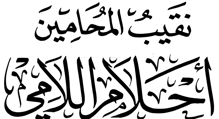 نَقِيبُ المُحَامِينَ
أحلام اللامي